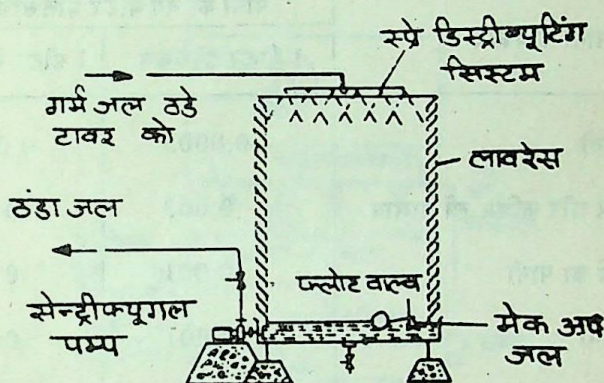 स्प्रे डिस्ट्रीब्यूटिंग
सिस्टम
गर्म जल ठंडे
टावर को
लावरेस
ठंडा जल
फ्लोट वाल्व
सेन्ट्रीफ्यूगल
पम्प
मेक अप
जल